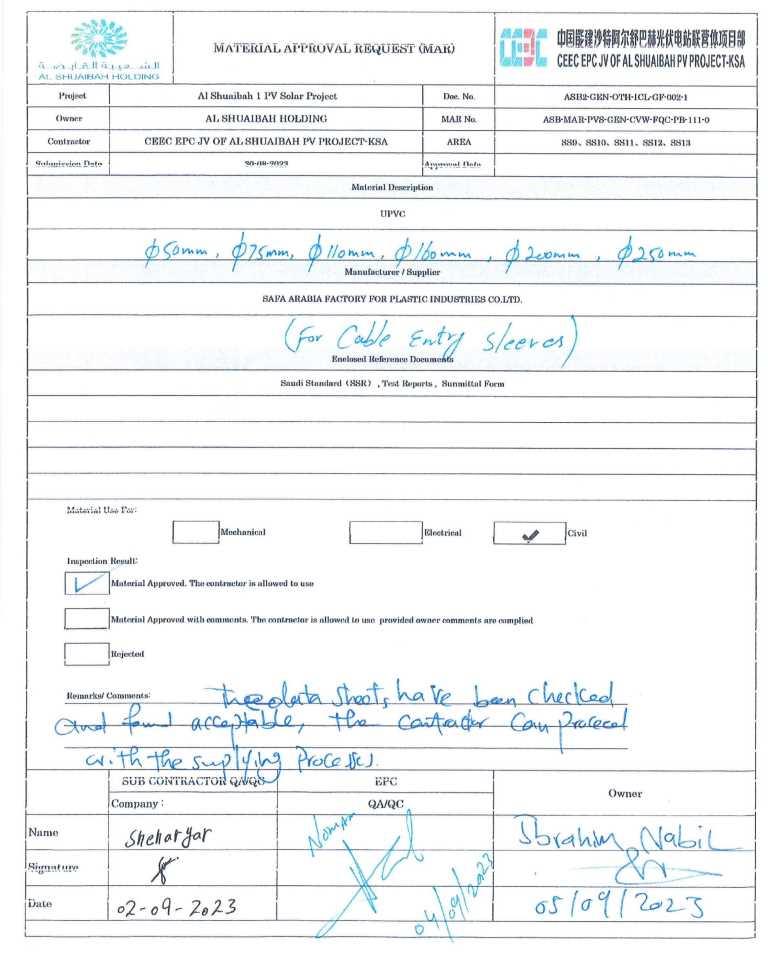 الشعيبة القابضة
AL SHUAIBAH HOLDING
MATERIAL APPROVAL REQUEST (MAR)
中国能建沙特阿尔舒巴赫光伏电站联营体项目部
CEEC EPC JV OF AL SHUAIBAH PV PROJECT-KSA
Project Al Shuaibah 1 PV Solar Project Doc. No. ASB2-GEN-OTH-ICL-GF-002-1
Owner AL SHUAIBAH HOLDING MAR No. ASB-MAR-PVS-GEN-CVW-FQC-PB-111-0
Contractor CEEC EPC JV OF AL SHUAIBAH PV PROJECT-KSA AREA SS09、SS10、SS11、SS12、SS13
Submission Date 30-08-2023 Approval Date
Material Description
UPVC
ϕ50mm, ϕ75mm, ϕ110mm, ϕ160mm, ϕ200mm, ϕ250mm
Manufacturer / Supplier
SAFA ARABIA FACTORY FOR PLASTIC INDUSTRIES CO.LTD.
(For Cable Entry Sleeves)
Enclosed Reference Documents
Saudi Standard (SSR) , Test Reports , Sunmittal Form
Material Use For:
Mechanical Electrical ✓ Civil
Inspection Result:
✓ Material Approved. The contractor is allowed to use
Material Approved with comments. The contractor is allowed to use provided owner comments are complied
Rejected
Remarks/ Comments: The data sheets have been checked
and found acceptable, the contractor can proceed
with the supplying processes.
SUB CONTRACTOR QA/QC EPC Owner
Company : QA/QC
Name Sheharyar Noman Ibrahim Nabil
Signature
Date 02-09-2023 04/09/2023 05/09/2023